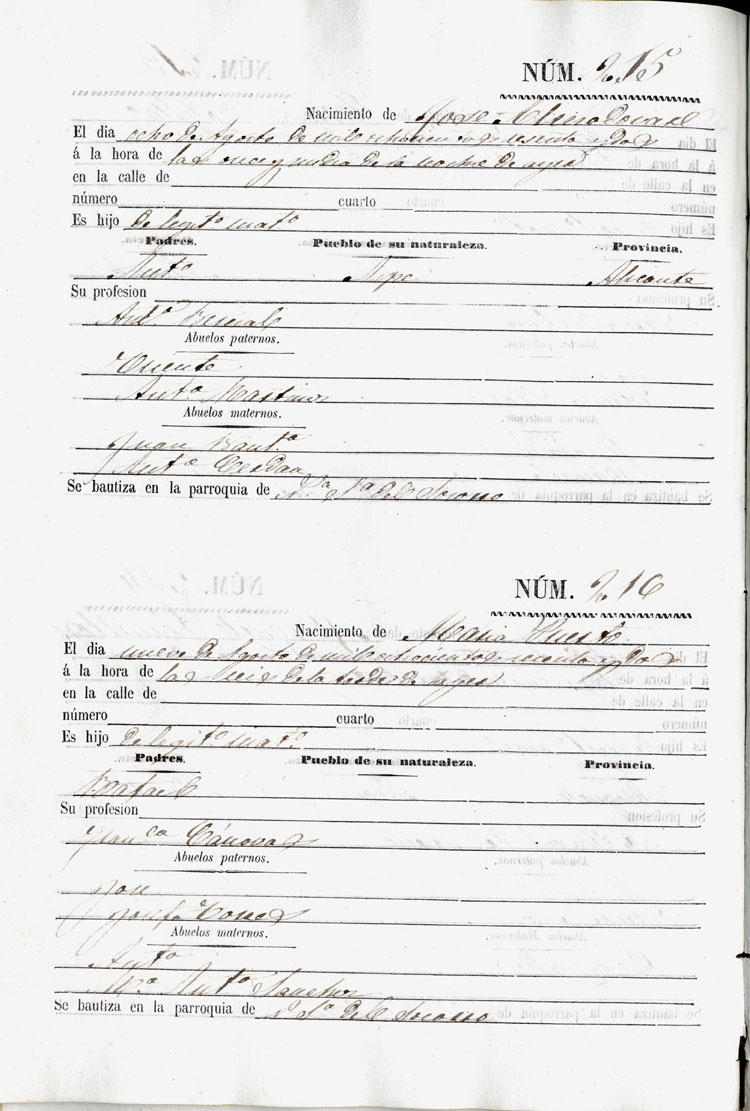 NÚM. 215
Nacimiento de Jose
El dia ocho de Agosto de mil ochocientos sesenta y dos
á la hora de las once y media de la noche de ayer
en la calle de
número cuarto
Es hijo de legit.o mat.o
Padres. Pueblo de su naturaleza. Provincia.
Ant.o Alicante
Su profesion
Ant.a Bernal
Abuelos paternos.
Vicente
Ant.a Martinez
Abuelos maternos.
Juan Baut.a
Ant.a Cerdan
Se bautiza en la parroquia de N.a S.a del Socorro
NÚM. 216
Nacimiento de Maria Huerto
El dia nueve de Agosto de mil ochocientos sesenta y dos
á la hora de las seis de la tarde de ayer
en la calle de
número cuarto
Es hijo de legit.o mat.o
Padres. Pueblo de su naturaleza. Provincia.
Rafael
Su profesion
Fran.ca Cánovas
Abuelos paternos.
Jose
Josefa
Abuelos maternos.
Ant.o
M.a Ant.a Sanchez
Se bautiza en la parroquia de N. S.a del Socorro